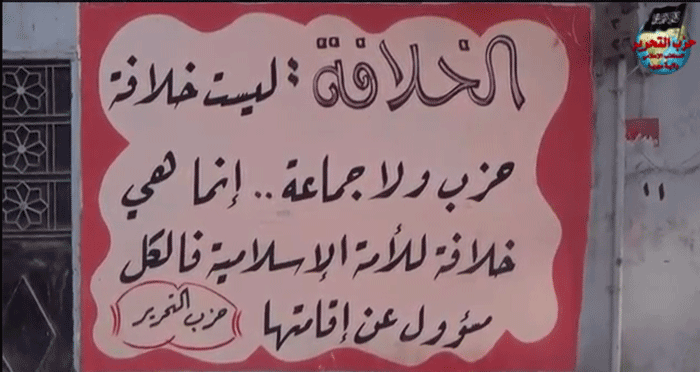 الخلافة : ليست خلافة
حزب ولا جماعة .. إنما هي
خلافة للأمة الإسلامية فالكل
مسؤول عن إقامتها
حزب التحرير
حزب التحرير
١١